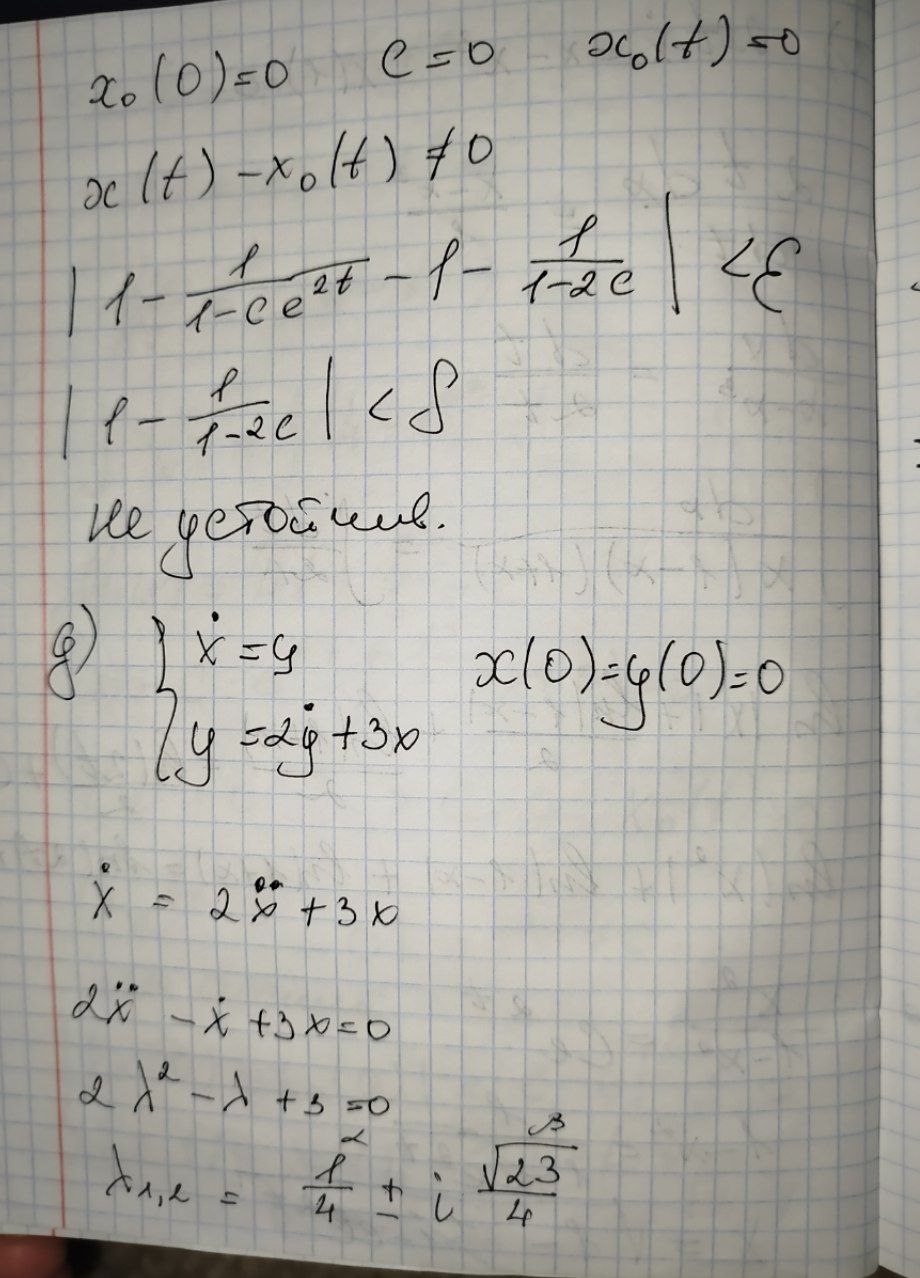 x₀(0)=0 C=0 x₀(t)=0
x(t)-x₀(t)≠0
|1 - 1/(1-Ce^{2t}) - 1 - 1/(1-2C)| < ε
|1 - 1/(1-2C)| < δ
не устойчив.
g) { ẋ = y x(0)=y(0)=0
y = 2ẏ + 3x
ẋ = 2ẍ + 3x
2ẍ - ẋ + 3x = 0
2λ² - λ + 3 = 0
α β
λ₁,₂ = 1/4 ± i √23/4